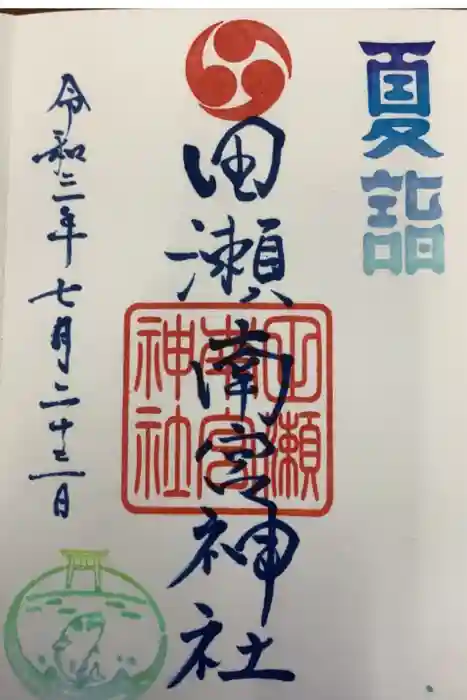 夏詣
田瀬南宮神社
田瀬
南宮
神社
令和三年七月二十三日